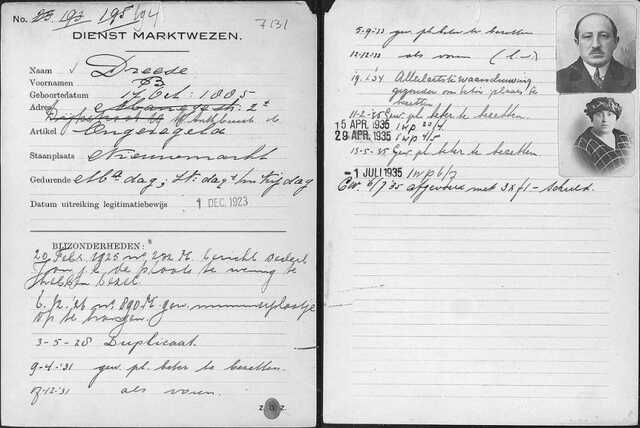 No. 23. 193 195 194
7131
DIENST MARKTWEZEN.
Naam Dreese
Voornamen
Geboortedatum 17 Oct: 1885
Adres
Artikel Ongeregeld
Staanplaats Nieuwmarkt
Gedurende Ma dag;
Datum uitreiking legitimatiebewijs 1 DEC. 1923
BIJZONDERHEDEN:
20 Febr. 1925 no 272 M. bericht sedert
de plaats te weinig te
hebben bezet.
6.12.'26 no 890 M. gew. nummerplaatje
op te hangen.
3-5-28 Duplicaat.
9-4-'31 gew. pl. beter te bezetten.
12-31 als voren.
z. o. z.
5-9-33 gew. pl. beter te bezetten
12-12-33 als voren
19.1.34 Allerlaatste waarschuwing
gezonden om plaats te
bezetten
11-2-35 Gew. pl. beter te bezetten.
15 APR. 1935
29 APR. 1935
13-5-35 Gew. pl. beter te bezetten.
-1 JULI 1935
6/7 '35 afgevoerd met 3 x f1 - schuld.